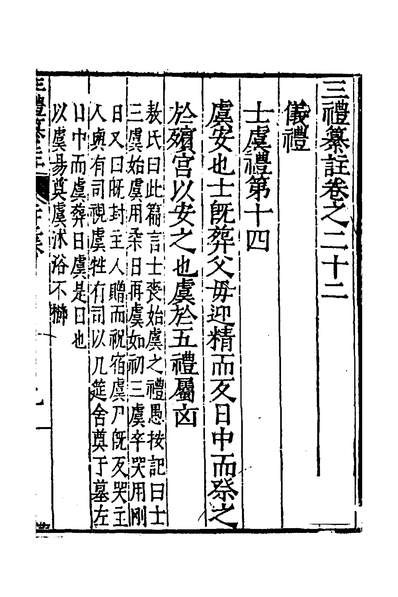 三禮纂註卷之二十二
儀禮
士虞禮第十四
虞安也士既葬父母迎精而反日中而祭之
於殯宮以安之也虞於五禮屬凶
敖氏曰此篇言士喪始虞之禮愚按記曰士
三虞始虞用柔日再虞如初三虞卒哭用剛
日又曰既封主人贈而祝宿虞尸既反哭主
人與有司視虞牲有司以几筵舍奠于墓左
日中而虞葬日虞是日也
以虞易奠虞沐浴不櫛